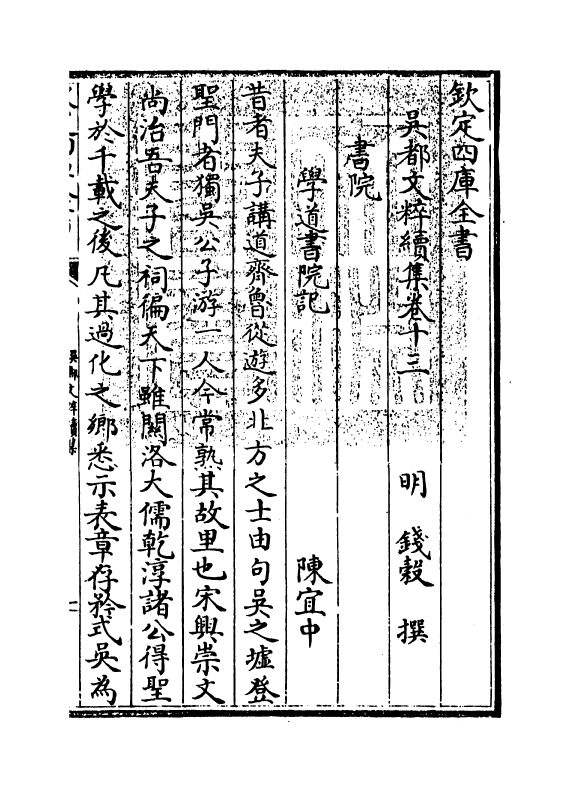 欽定四庫全書
吳都文粹續集卷十三
明 錢穀 撰
書院
學道書院記
陳宜中
昔者夫子講道齊魯從遊多北方之士由句吳之墟登
聖門者獨吳公子游一人今常熟其故里也宋興崇文
尚治吾夫子之祠徧天下雖關洛大儒乾淳諸公得聖
學於千載之後凡其過化之鄉悉示表章存矜式吳為
吳都文粹續集